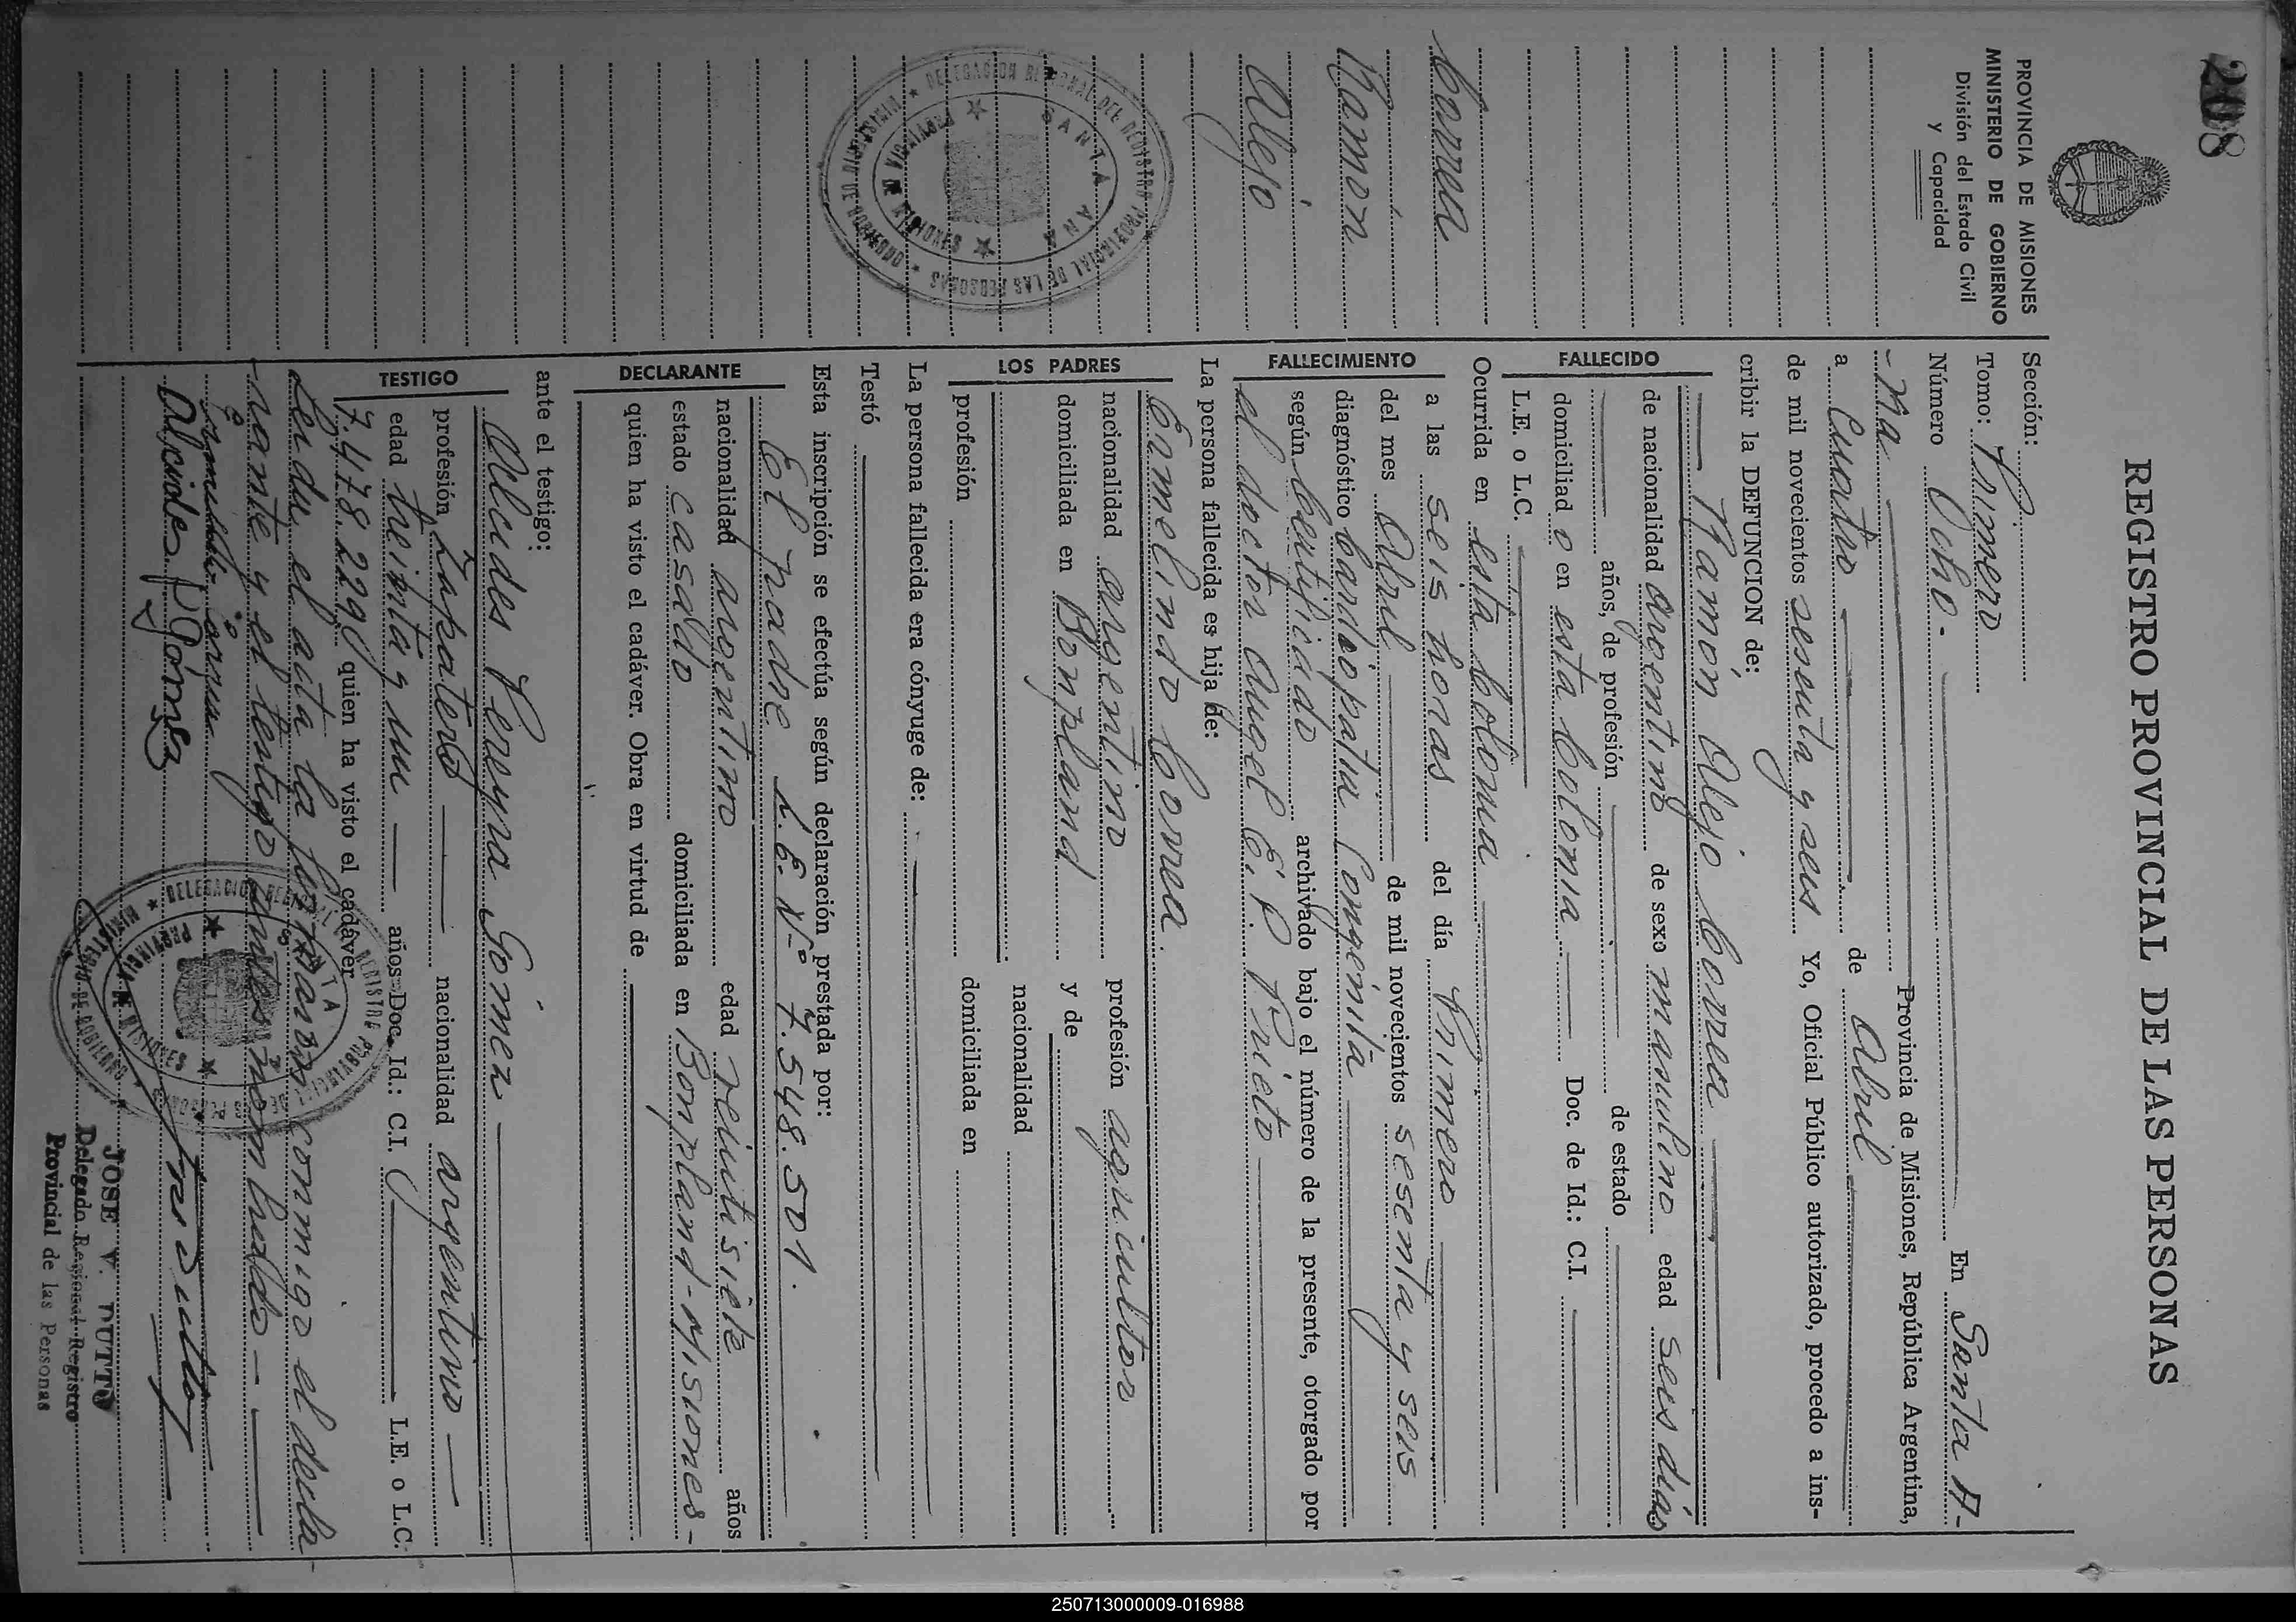 208
REGISTRO PROVINCIAL DE LAS PERSONAS
PROVINCIA DE MISIONES
MINISTERIO DE GOBIERNO
División del Estado Civil
y Capacidad
Correa
Ramón
Alejo
DELEGACION REGIONAL DEL REGISTRO PROVINCIAL DE LAS PERSONAS
MINISTERIO DE GOBIERNO
SANTA ANA
PROVINCIA DE MISIONES
Sección:
Tomo: Primero
Número Ocho.- En Santa A-
-na Provincia de Misiones, República Argentina,
a Cuatro de Abril
de mil novecientos sesenta y seis Yo, Oficial Público autorizado, procedo a ins-
cribir la DEFUNCION de:
Ramón Alejo Correa
FALLECIDO
de nacionalidad argentino de sexo masculino edad seis días
años, de profesión de estado
domiciliado en esta colonia Doc. de Id.: C.I.
L.E. o L.C.
Ocurrida en esta colonia
FALLECIMIENTO
a las seis horas del día Primero
del mes Abril de mil novecientos sesenta y seis
diagnóstico Cardiopatía Congénita
según Certificado archivado bajo el número de la presente, otorgado por
el doctor Angel E. P. Prieto
La persona fallecida es hija de:
Ermelindo Correa.
LOS PADRES
nacionalidad argentino profesión agricultor
domiciliada en Bonpland y de
nacionalidad
profesión domiciliada en
La persona fallecida era cónyuge de:
Testó
Esta inscripción se efectúa según declaración prestada por:
El padre L.E. Nº 7.548.501.
DECLARANTE
nacionalidad argentino edad veintisiete años
estado casado domiciliada en Bonpland-Misiones-
quien ha visto el cadáver. Obra en virtud de
ante el testigo:
Alcides Pereyra Gómez
TESTIGO
profesión Zapatero nacionalidad argentino
edad treinta y un años-Doc. Id.: C.I. L.E. o L.C:
7.478.229 quien ha visto el cadáver
Leída el acta la firmaron conmigo el decla-
rante y el testigo antes nombrado-
Ermelindo Correa
Alcides P Gómez
DELEGACION REGIONAL DEL REGISTRO PROVINCIAL DE LAS PERSONAS
MINISTERIO DE GOBIERNO
SANTA ANA
PROVINCIA DE MISIONES
JOSE V. DUTTO
Delegado Regional Registro
Provincial de las Personas
250713000009-016988